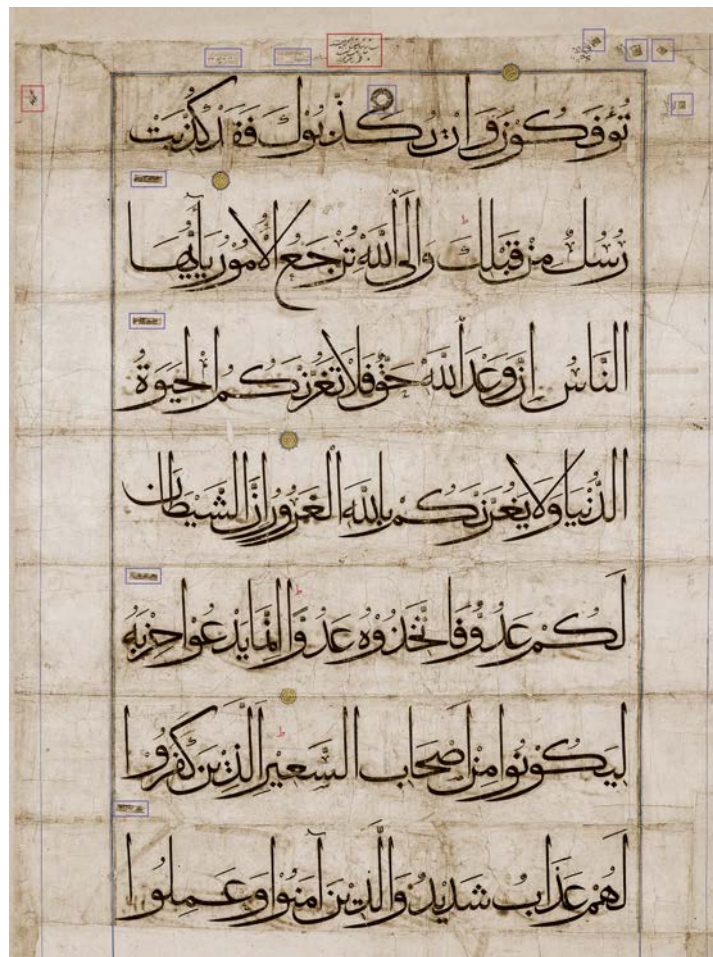 تُؤْفَكُونَ وَإِن يُكَذِّبُوكَ فَقَدْ كُذِّبَتْ
رُسُلٌ مِنْ قَبْلِكَ وَإِلَى اللَّهِ تُرْجَعُ الْأُمُورُ يَا أَيُّهَا
النَّاسُ إِنَّ وَعْدَ اللَّهِ حَقٌّ فَلَا تَغُرَّنَّكُمُ الْحَيَوةُ
الدُّنْيَا وَلَا يَغُرَّنَّكُمْ بِاللَّهِ الْغَرُورُ إِنَّ الشَّيْطَانَ
لَكُمْ عَدُوٌّ فَاتَّخِذُوهُ عَدُوًّا إِنَّمَا يَدْعُوا حِزْبَهُ
لِيَكُونُوا مِنْ أَصْحَابِ السَّعِيرِ الَّذِينَ كَفَرُوا
لَهُمْ عَذَابٌ شَدِيدٌ وَالَّذِينَ آمَنُوا وَعَمِلُوا